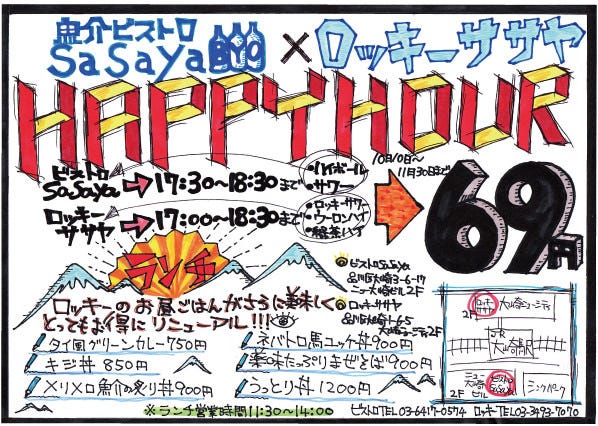 魚介ビストロ
SaSaYa BYO × ロッキーササヤ
HAPPY HOUR
ビストロ
SaSaya → 17:30~18:30まで
・ハイボール
・サワー
ロッキー
ササヤ → 17:00~18:30まで
・ロッキーサワー
・ウーロンハイ
・緑茶ハイ
11月30日まで
69円
ランチ
ロッキーのお昼ごはんがさらに美味しく
とってもお得にリニューアル!!!
ビストロSaSaya
品川区大崎3-6-17
ニュー大崎ビル2F
ロッキーササヤ
品川区大崎1-6-5
大崎ニューシティ2F
タイ風グリーンカレー750円
キジ丼 850円
メリメロ魚介の炙り丼900円
ネバトロ馬ユッケ丼900円
薬味たっぷりまぜそば900円
うっとり丼 1200円
ロッキーササヤ
大崎ニューシティ
2F
JR
大崎駅
ニュー大崎ビル
2F
ビストロSaSaya
シンクパーク
※ランチ営業時間11:30~14:00
ビストロTEL03-6417-0574 ロッキーTEL03-3493-7070